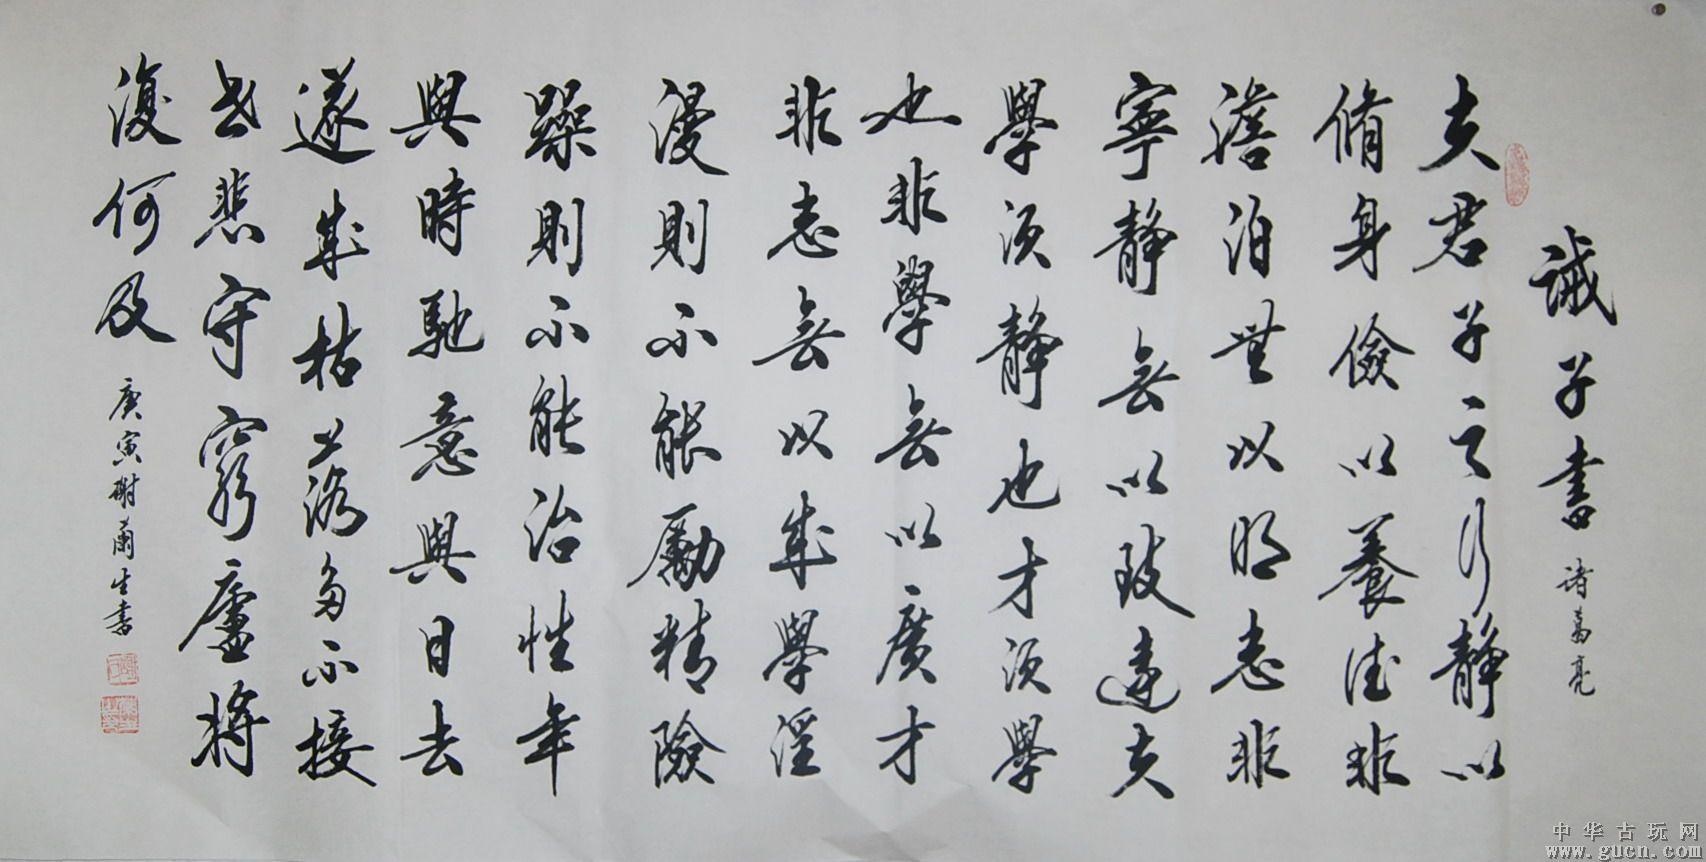 誡子書
诸葛亮
夫君子之行靜以
脩身儉以養德非
澹泊無以明志非
寧靜無以致遠夫
學須靜也才須學
也非學無以廣才
非志無以成學淫
漫則不能勵精險
躁則不能治性年
與時馳意與日去
遂成枯落多不接
世悲守窮廬將
復何及
庚寅謝蘭生書
中华古玩网
www.gucn.com